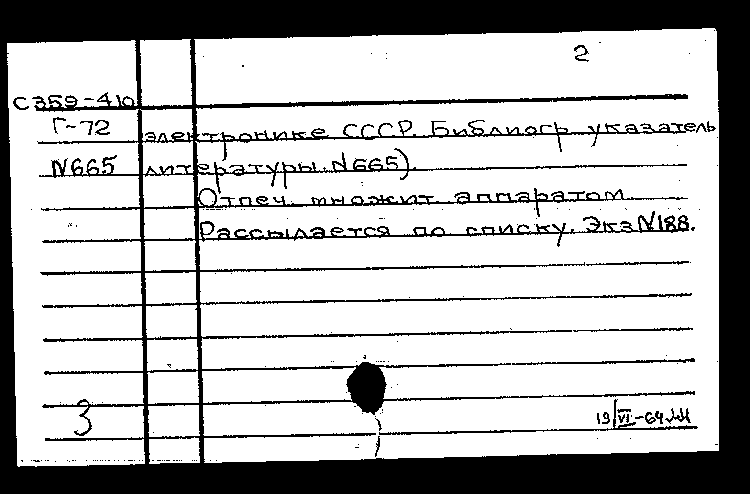 2
С359-410
Г-72 электронике СССР. Библиогр. указатель
N665 литературы N665)
Отпеч. множит. аппаратом
Рассылается по списку. Экз N188.
3
19/VI-64